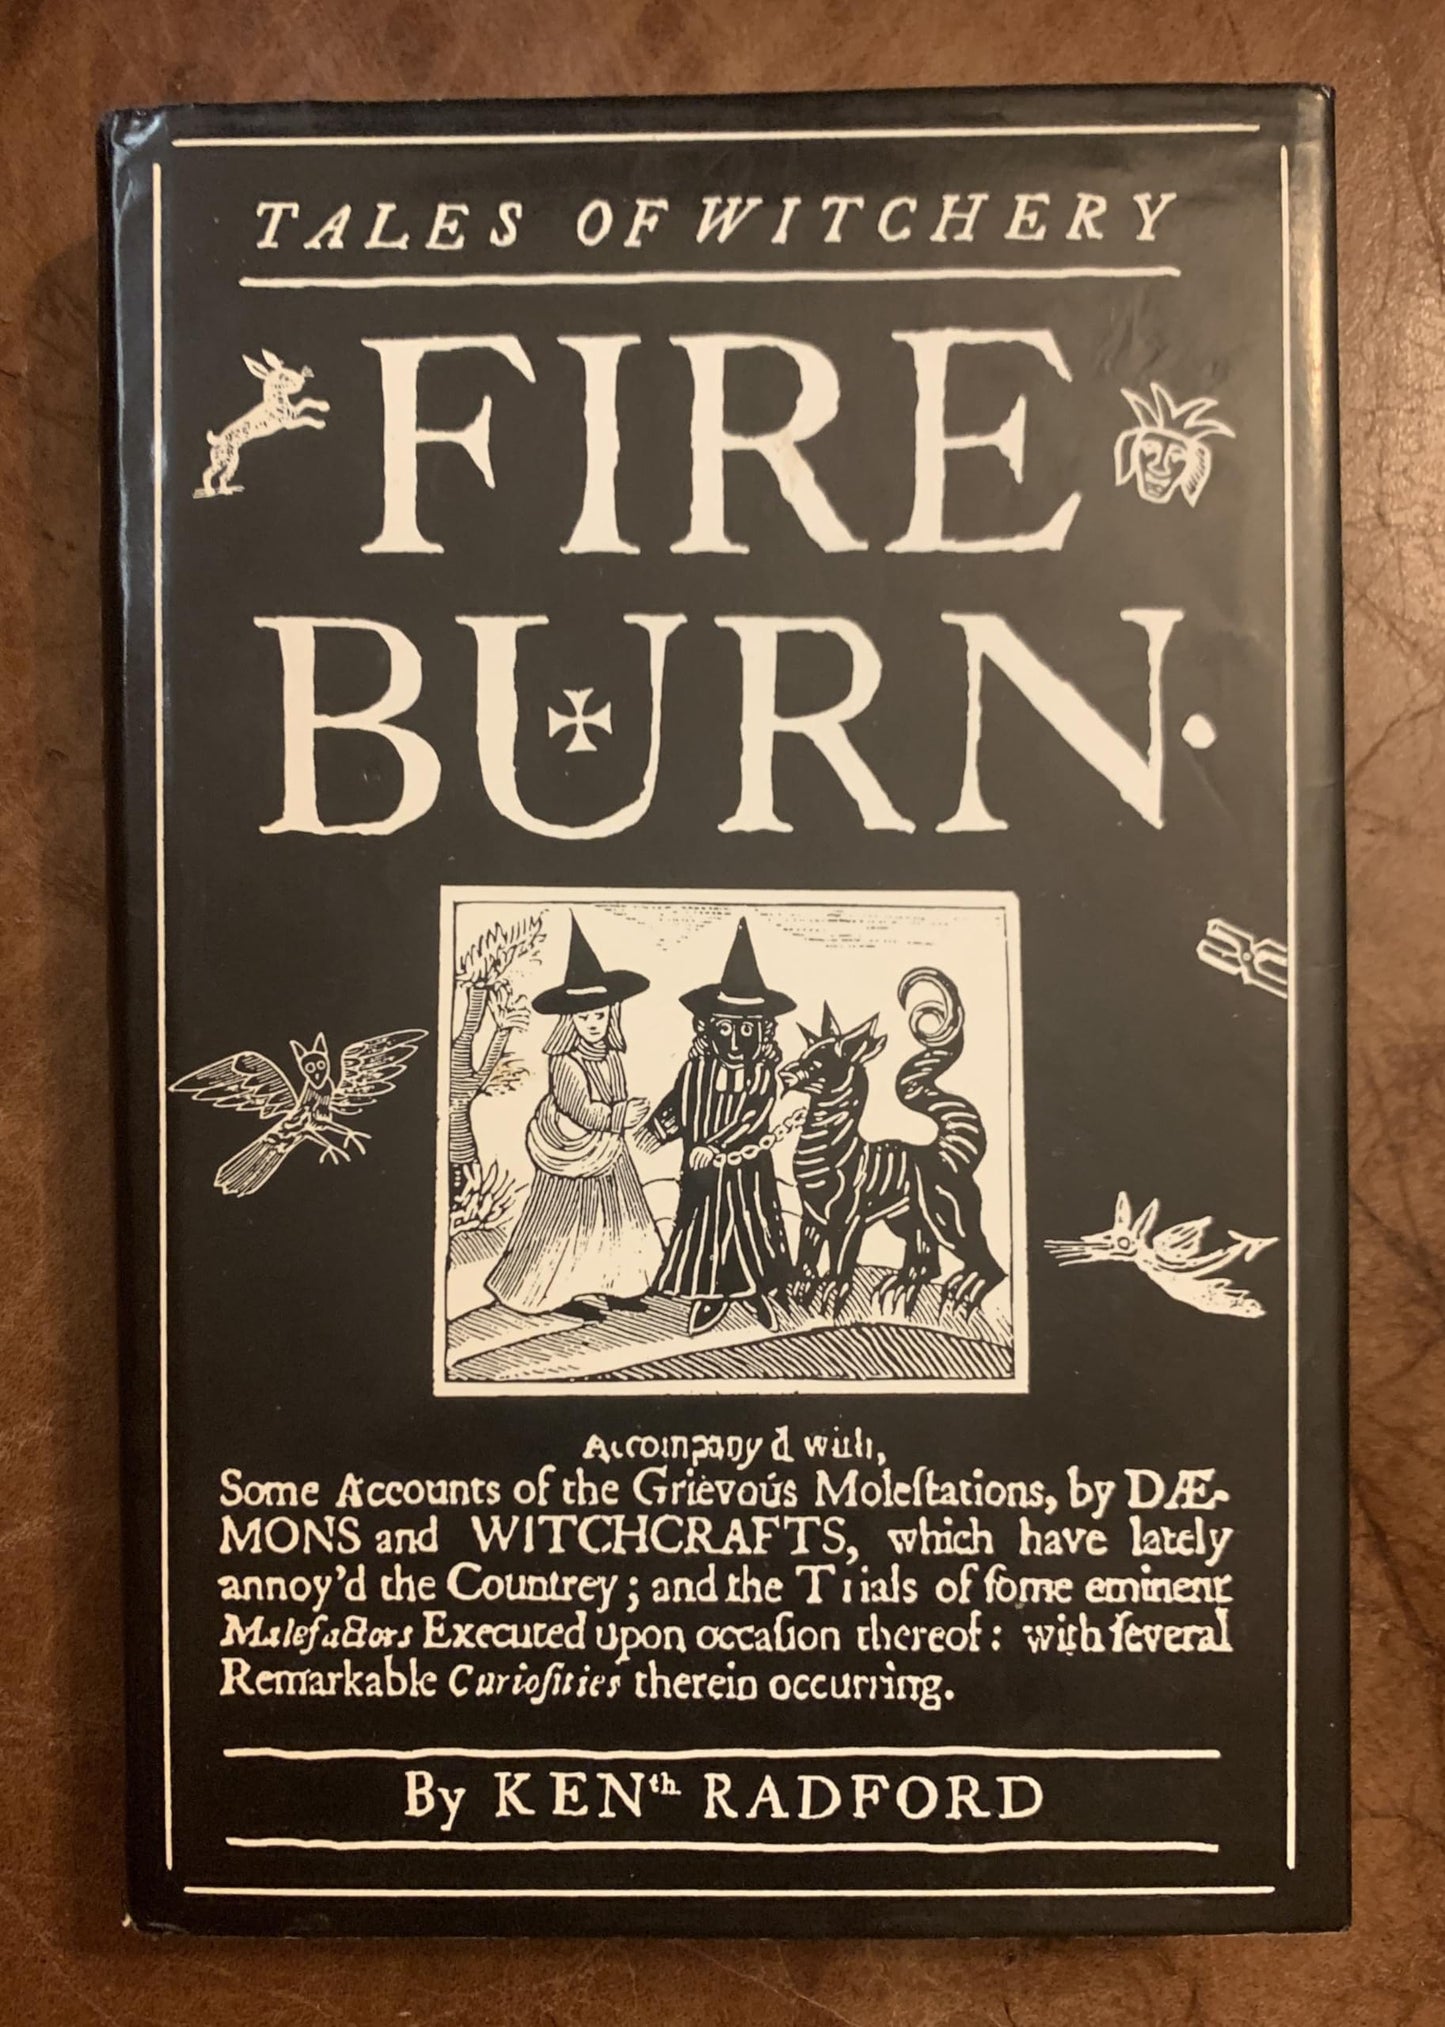 TALES OF WITCHERY
FIRE
BURN.
Accompany'd with,
Some Accounts of the Grievous Moleſtations, by DÆ-
MONS and WITCHCRAFTS, which have lately
annoy'd the Countrey; and the Trials of ſome eminent
Malefactors Executed upon occaſion thereof: with ſeveral
Remarkable Curioſities therein occurring.
By KENth RADFORD